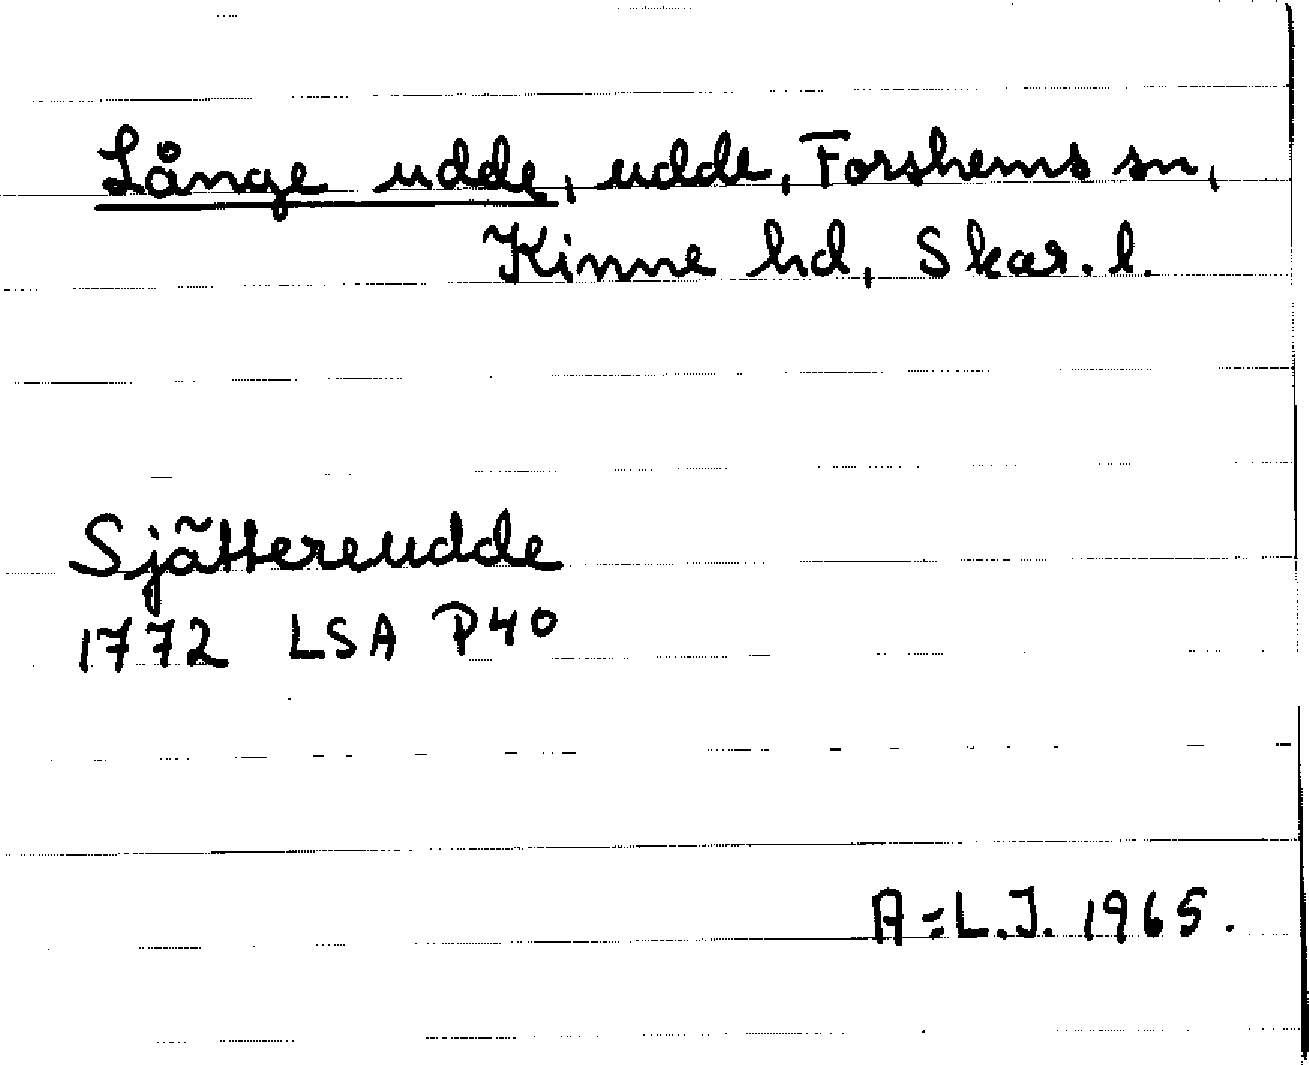 Långe udde, udde, Forshems sn,
Kinne hd, Skar. l.
Sjättereudde
1772 LSA P40
A-L.J. 1965.